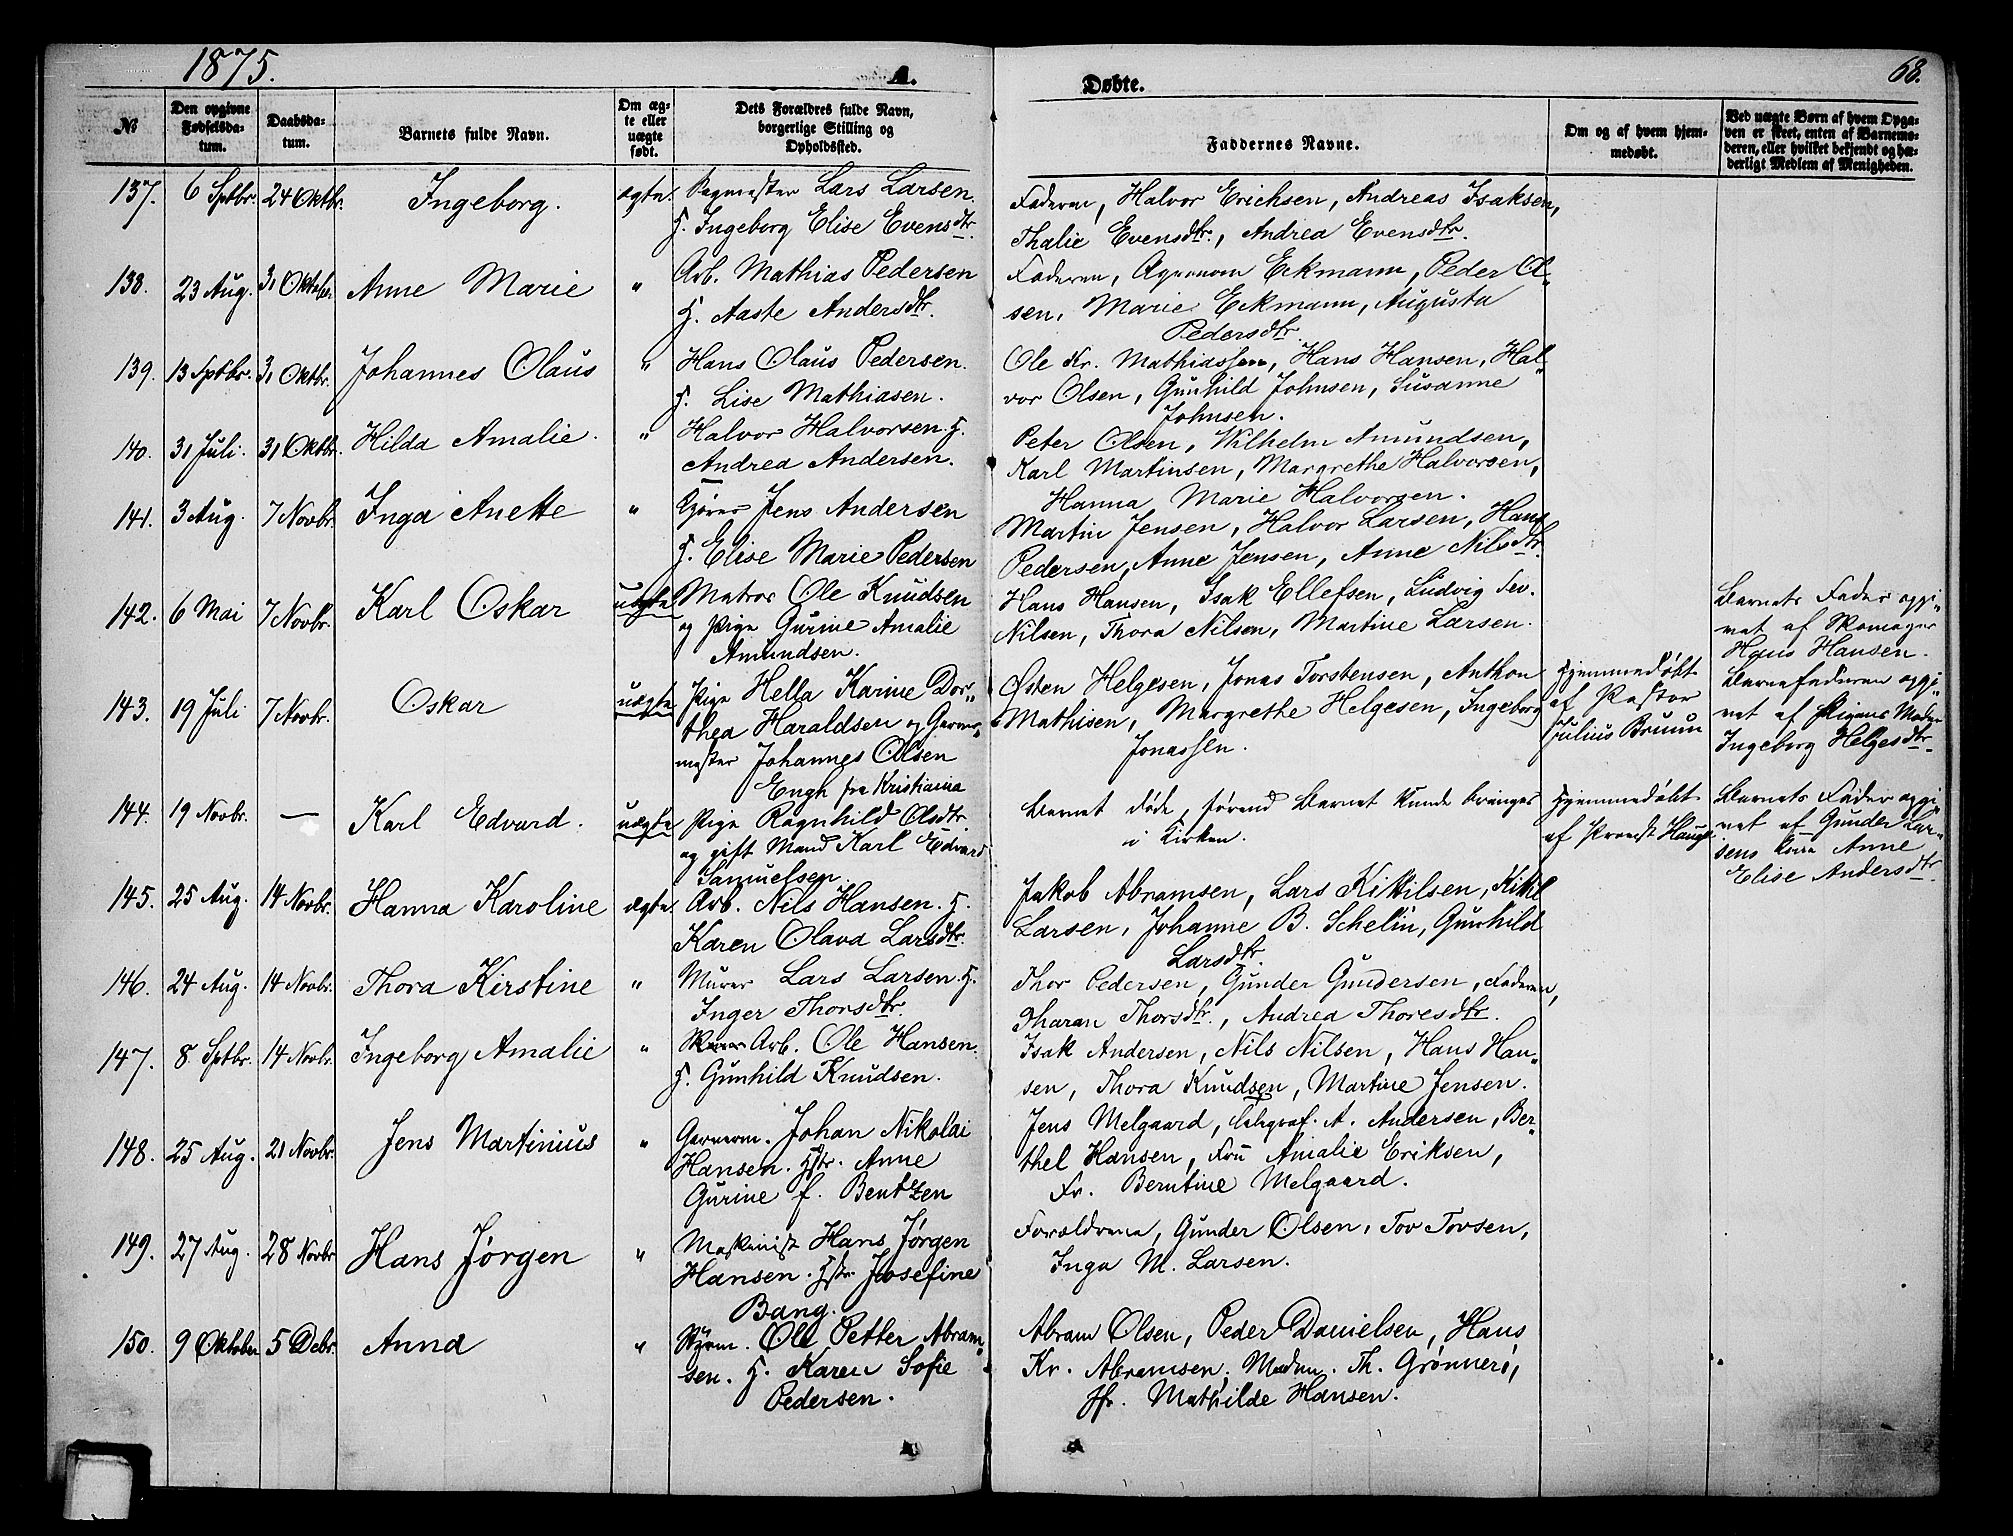 1875.
A.
Døbte.
68.
№
Den opgivne Fødselsda-tum.
Daabsda-tum.
Barnets fulde Navn.
Om æg-te eller uægte født.
Dets Forældres fulde Navn, borgerlige Stilling og Opholdssted.
Faddernes Navne.
Om og af hvem hjem-medøbt.
Ved uægte Børn af hvem Opga-ven er skeet, enten af Barnemo-deren, eller hvilket bekjendt og hæ-derligt Medlem af Menigheden.
137. 6 Sptbr. 24 Oktbr. Ingeborg. ægte. Lars Larsen.
H. Ingeborg Elise Evensdtr.
Faderen, Halvor Erichsen, Andreas Isaksen,
Thalie Evensdtr., Andrea Evensdtr.
138. 23 Aug. 31 Oktober Anne Marie " Arb. Mathias Pedersen
H. Aaste Andersdtr.
Faderen, Agronom Eckmann, Peder Ol-
sen, Marie Eckmann, Augusta
Pedersdtr.
139. 13 Sptbr. 31 Oktbr. Johannes Olaus " Hans Olaus Pedersen.
H. Lise Mathiasen.
Ole Kr. Mathiassen, Hans Hansen, Hal-
vor Olsen, Gunhild Johnsen, Susanne
Johnsen.
140. 31 Juli. 31 Oktbr. Hilda Amalie. " Halvor Halvorsen. H.
Andrea Andersen.
Peter Olsen, Wilhelm Amundsen,
Karl Martinsen, Margrethe Halvorsen,
Hanna Marie Halvorsen.
141. 3 Aug. 7 Novbr. Inga Anette " Kjører Jens Andersen
H. Elise Marie Pedersen
Martin Jensen, Halvor Larsen, Hans
Pedersen, Anne Jensen, Anne Nilsdtr.
142. 6 Mai 7 Novbr. Karl Oskar uægte Matros Ole Knudsen
og Pige Gurine Amalie
Amundsen.
Hans Hansen, Isak Ellefsen, Ludvig Sev.
Nilsen, Thora Nilsen, Martine Larsen.
Barnets Fader opgi-
vet af Skomager
Hans Hansen.
143. 19 Juli 7 Novbr. Oskar uægte Pige Hella Karine Dor-
thea Haraldsen og Garver-
mester Johannes Olsen
Engh fra Kristiania
Østen Helgesen, Jonas Torstensen, Anthon
Mathisen, Margrethe Helgesen, Ingeborg
Jonassen.
Hjemmedøbt
af Pastor
Julius Bruun
Barnefaderen opgi-
vet af Pigens Moder
Ingeborg Helgesdtr.
144. 19 Novbr. — Karl Edvard. uægte Pige Ragnhild Olsdtr.
og gift Mand Karl Edvard
Samuelsen.
Barnet døde, førend Barnet kunde bringes
i Kirken.
Hjemmedøbt
af Provst Hauge
Barnets Fader opgi-
vet af Gunder Lar-
sens Kone Anne
Elise Andersdtr.
145. 25 Aug. 14 Novbr. Hanna Karoline ægte. Arb. Nils Hansen. H.
Karen Olava Larsdtr.
Jakob Abramsen, Lars Kittilsen, Kittil
Larsen, Johanne B. Schelin, Gunhild
Larsdtr.
146. 24 Aug. 14 Novbr. Thora Kirstine " Murer Lars Larsen. H.
Inger Thorsdtr.
Thor Pedersen, Gunder Gundersen, Faderen,
Tharan Thorsdtr., Andrea Thoresdtr.
147. 8 Sptbr. 14 Novbr. Ingeborg Amalie " Arb. Ole Hansen.
H. Gunhild Knudsen.
Isak Andersen, Nils Nilsen, Hans Han-
sen, Thora Knudsen, Martine Jensen.
148. 25 Aug. 21 Novbr. Jens Martinius " Garverm. Johan Nikolai
Hansen. Hstr. Anne
Gurine f. Bentzen
Jens Melgaard, A. Andersen, Ber-
thel Hansen, Fru Amalie Eriksen,
Fr. Berntine Melgaard.
149. 27 Aug. 28 Novbr Hans Jørgen " Maskinist Hans Jørgen
Hansen. Hstr. Josefine
Bang.
Forældrene, Gunder Olsen, Tov Tovsen,
Inga M. Larsen.
150. 9 Oktober 5 Debr. Anna " Styrm. Ole Petter Abram-
sen. H. Karen Sofie
Pedersen.
Abram Olsen, Peder Danielsen, Hans
Kr. Abramsen, Madm. Th. Grønnerø,
Jfr. Mathilde Hansen.